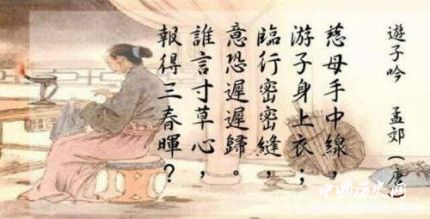 遊子吟　孟郊（唐
慈母手中線，
游子身上衣；
臨行密密縫，
意恐遲遲歸。
誰言寸草心，
報得三春暉？
中国历史网